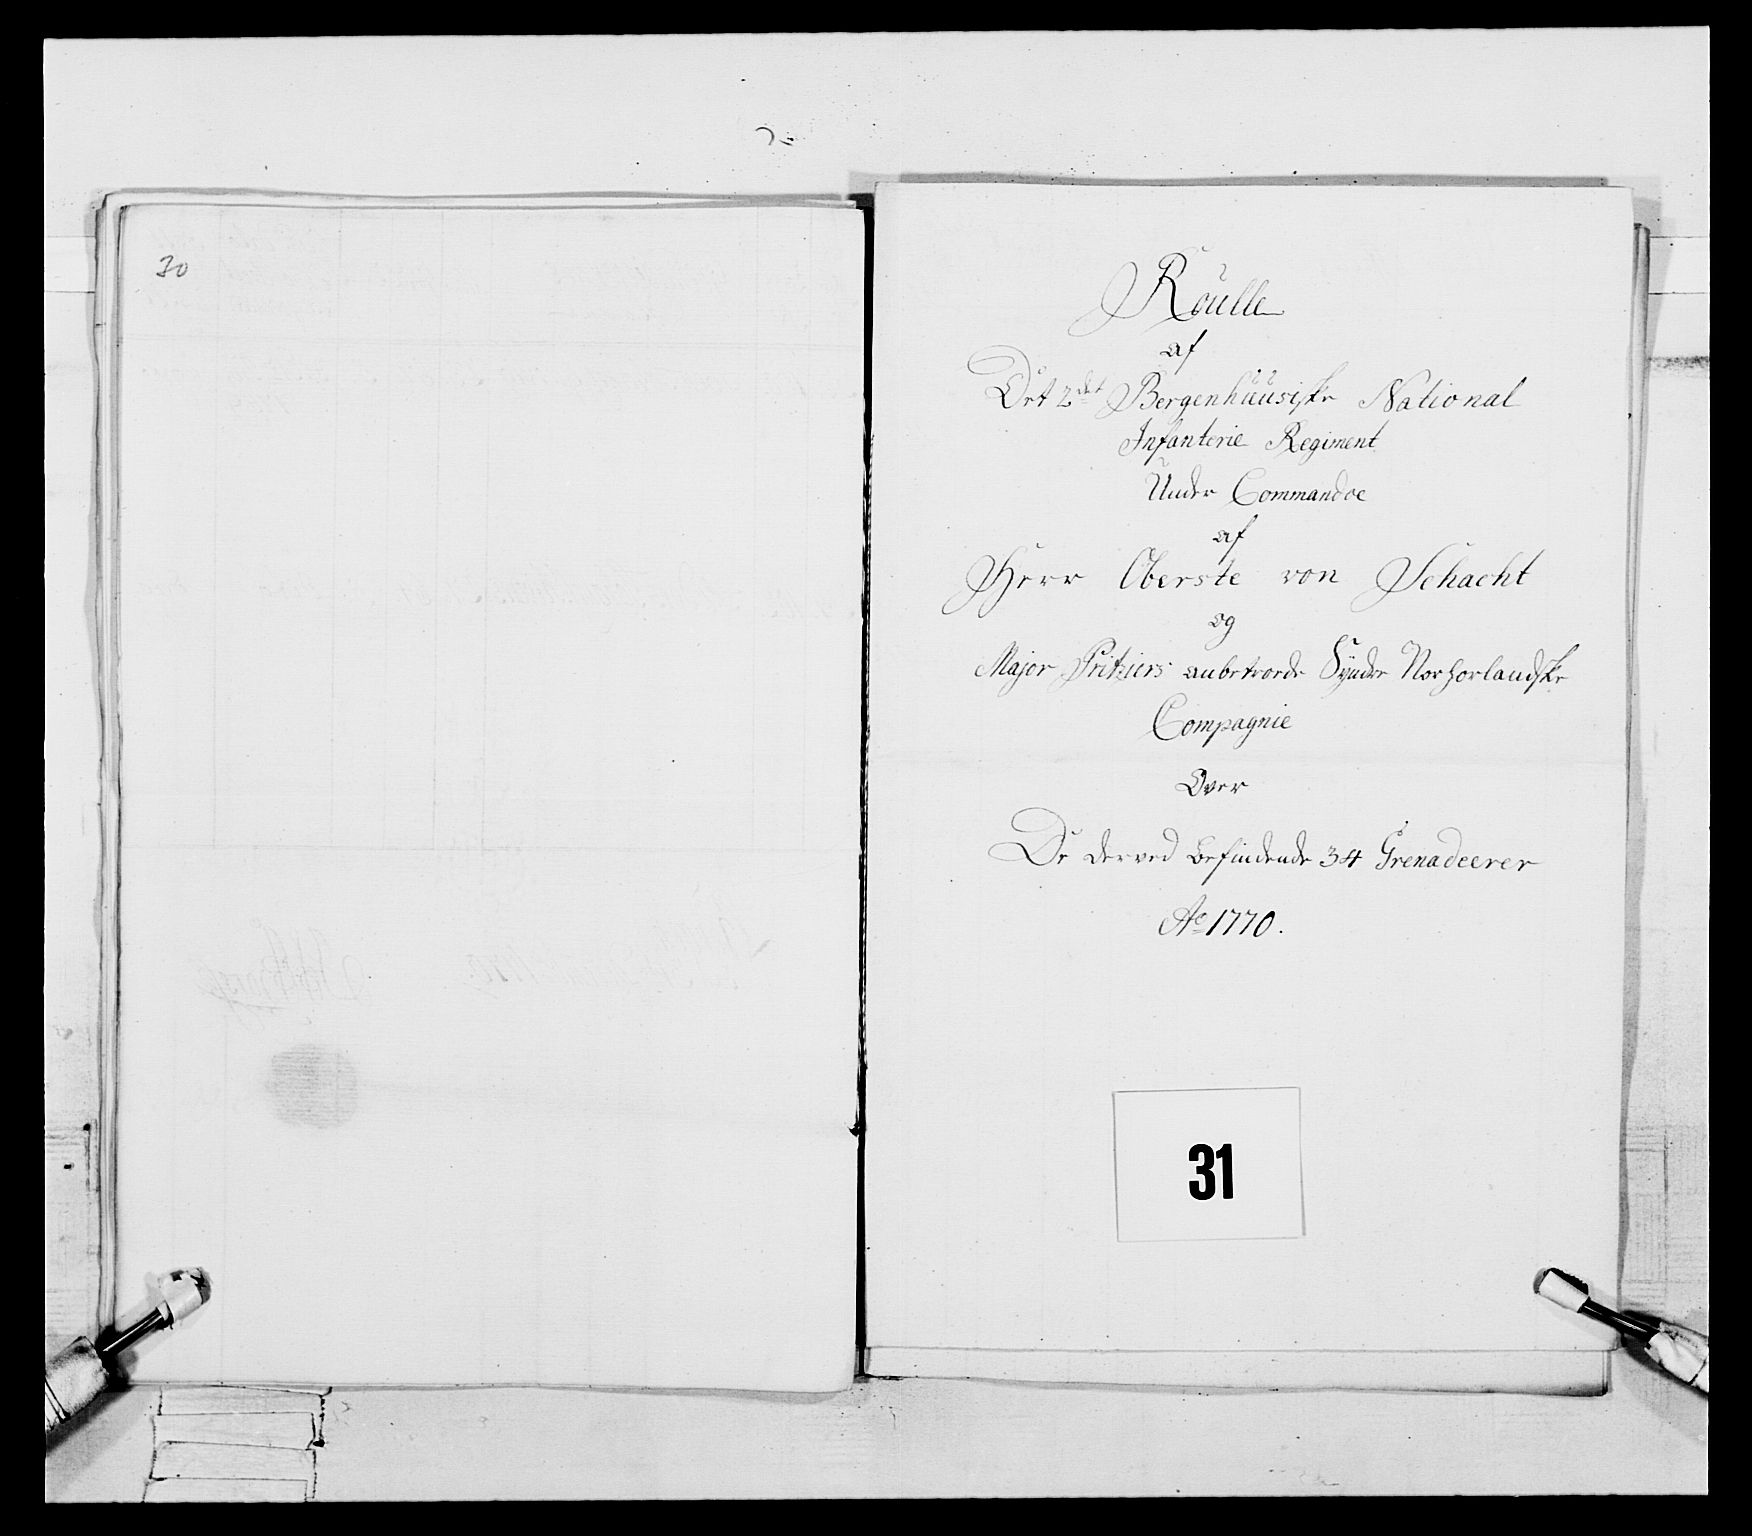 30
Roulle
af
Det 2det Bergenhuusiske National
Infanterie Regiment
Under Commandoe
af
Herr Oberste von Schacht
og
Major Pritziers anbetroede Syndre Norhorlandske
Compagnie
Over
De derved befindende 34 Grenadeerer
Ao 1770.
31